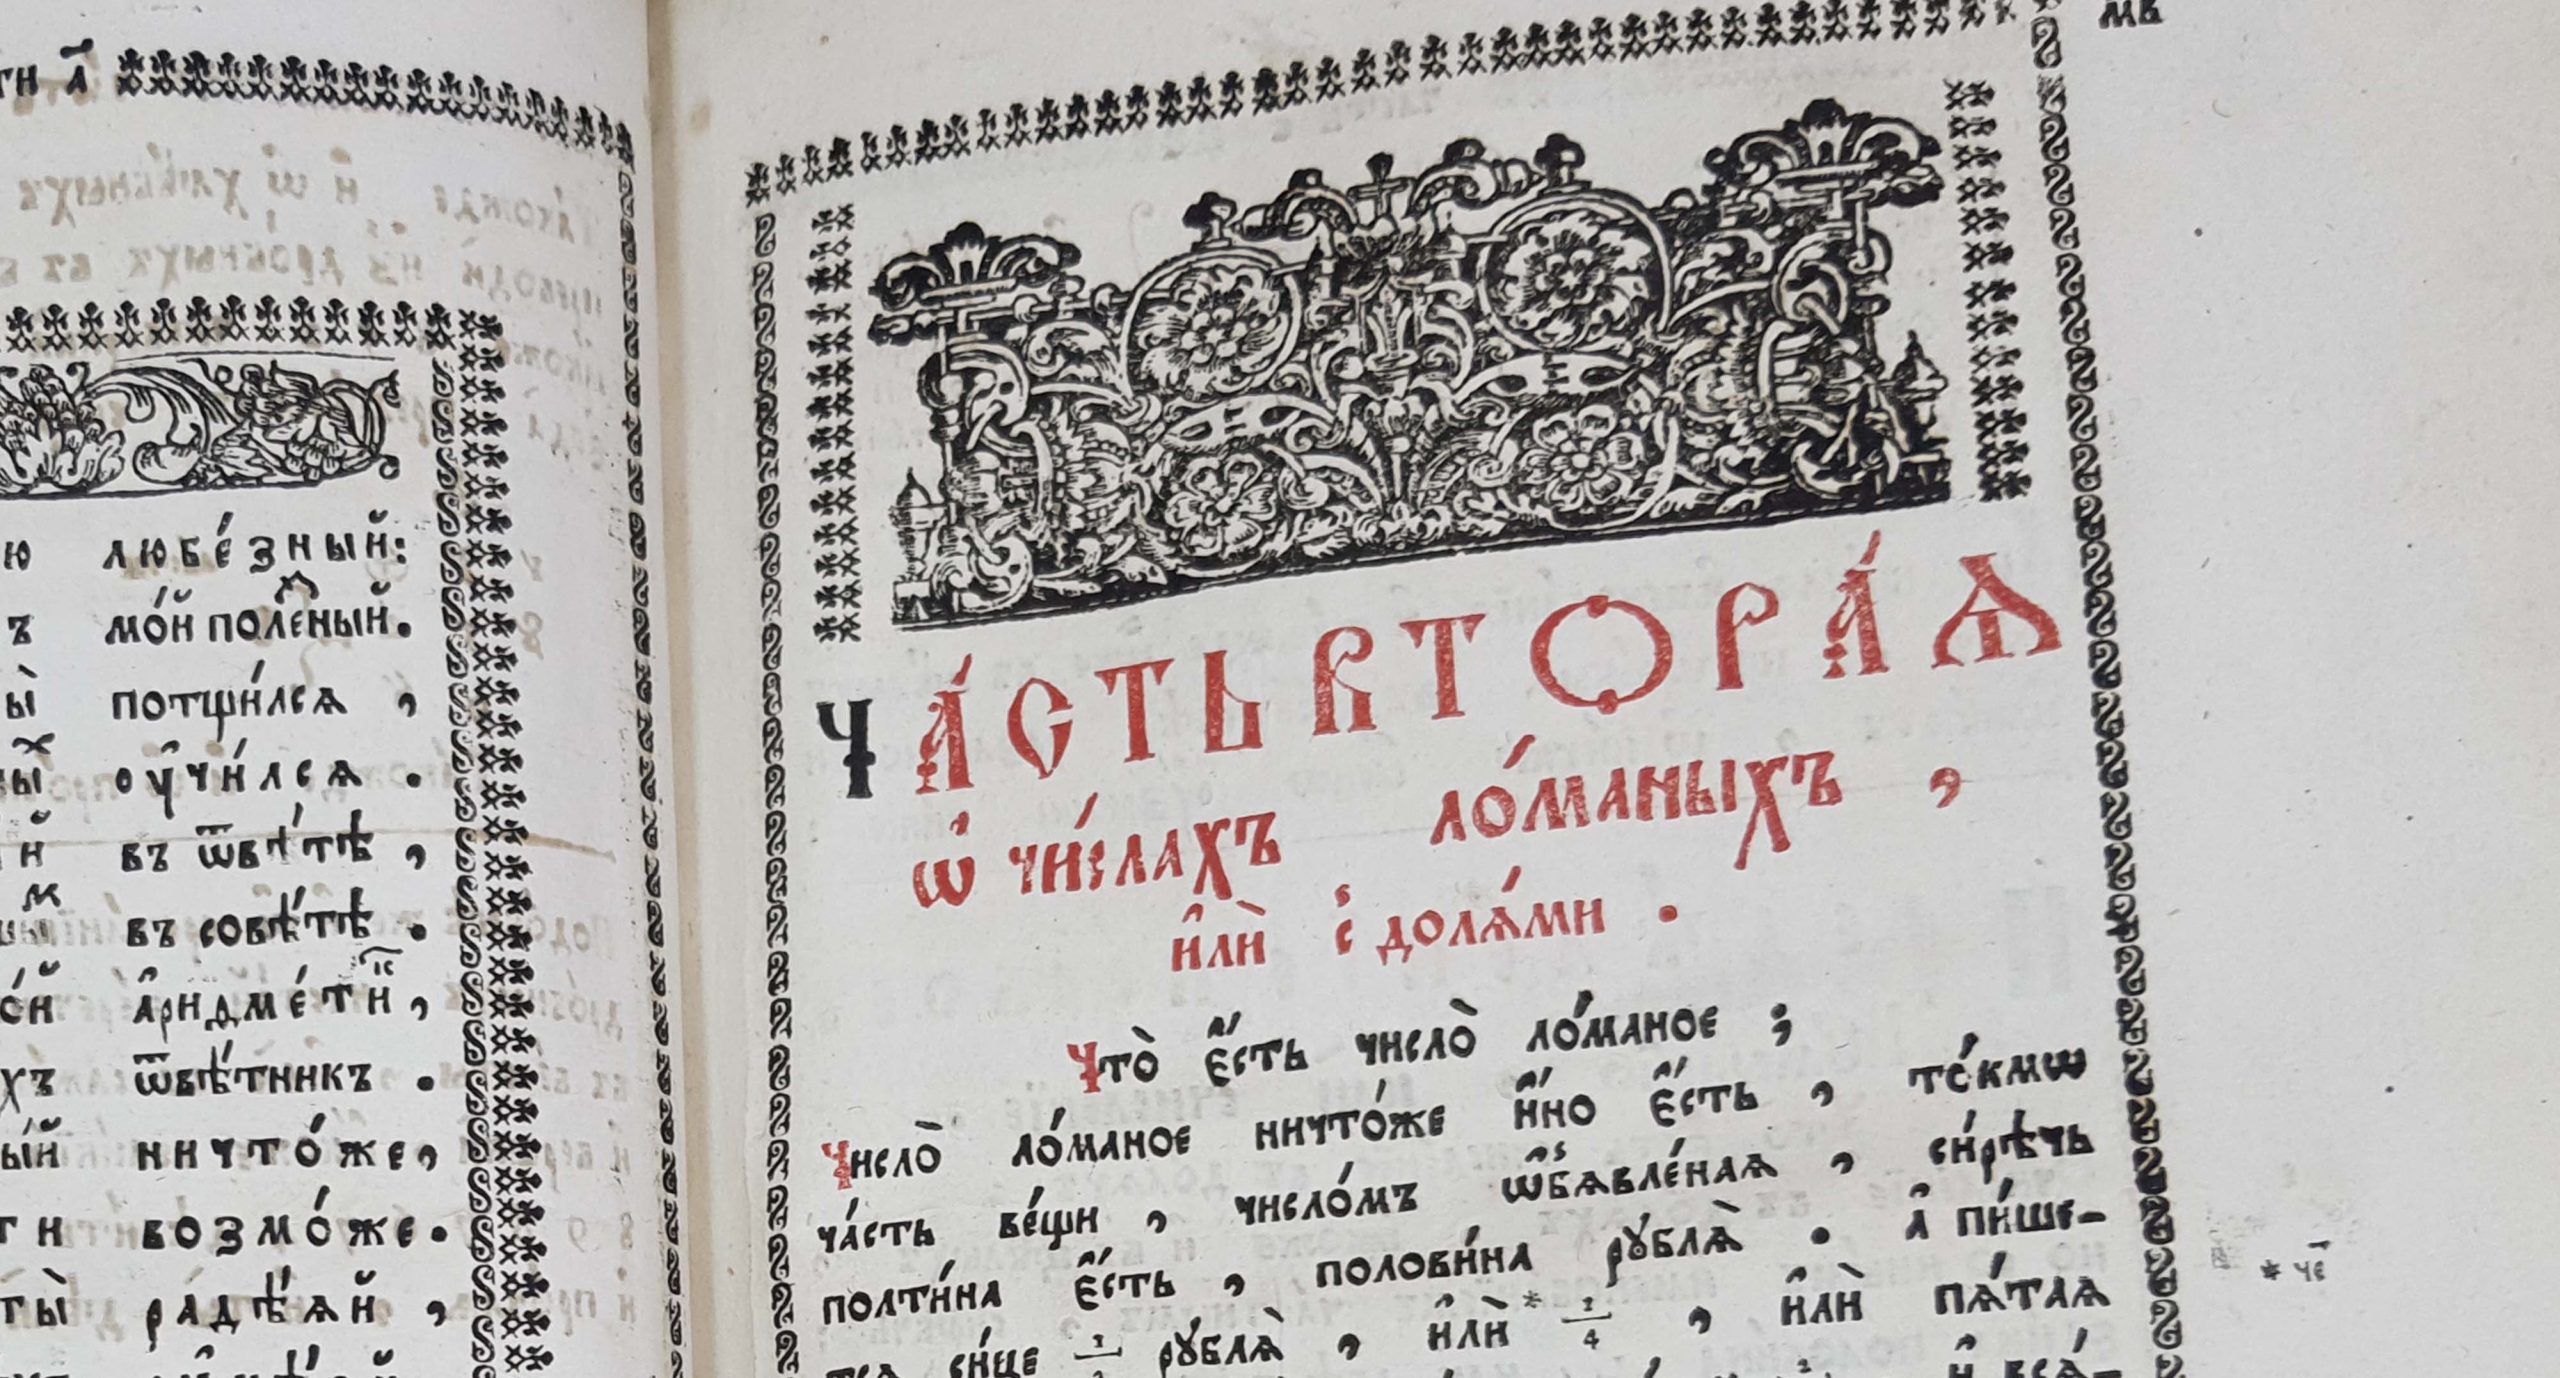 а҃
любе́зный:
мо́й поле́ный.
потщи́лсѧ ,
ᲂу҆чи́лсѧ .
въ ѿвѣ́тѣ ,
въ совѣ́тѣ .
а҆риѳме́ти ,
ѿвѣ́тникъ .
ничто́же,
возмо́же.
ты̀ радѣ́ѧй ,
мв
Ча́сть втора́ѧ
ѡ҆ чи́слахъ ло́маныхъ ,
и҆лѝ с̾ долѧ́ми .
Что̀ є҆́сть число̀ ло́маное ;
Число̀ ло́маное ничто́же и҆́но є҆́сть , то́кмѡ
ча́сть ве́щи , число́мъ ѡ҆б̾ѧвле́наѧ , си́рѣчь
полти́на є҆́сть , полови́на рꙋблѧ̀ . а҆ пи́ше-
тсѧ си́це ½ рꙋблѧ̀ , и҆лѝ * ¼ , и҆лѝ пѧ́таѧ
* че